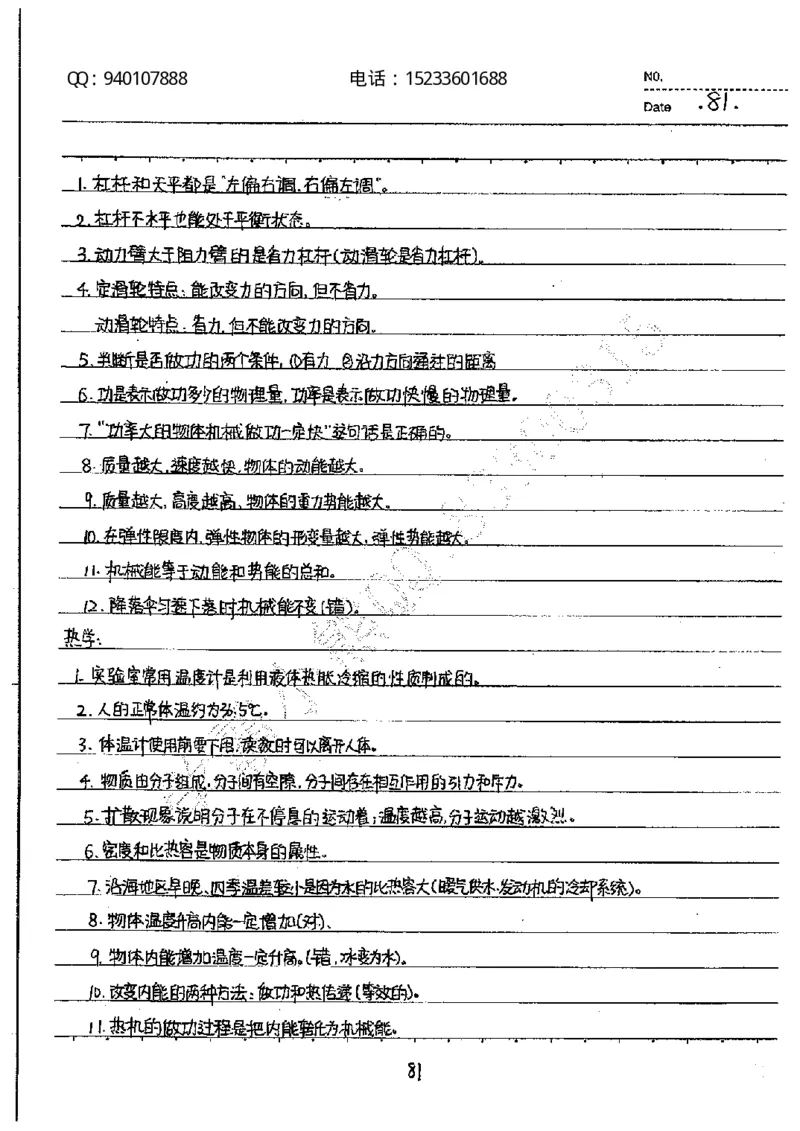 QQ：940107888 电话：15233601688 NO.
Date .81.
1. 杠杆和天平都是"左偏右调,右偏左调"。
2. 杠杆不水平也能处于平衡状态。
3. 动力臂大于阻力臂的是省力杠杆(动滑轮是省力杠杆)。
4. 定滑轮特点：能改变力的方向,但不省力。
动滑轮特点：省力,但不能改变力的方向。
5. 判断是否做功的两个条件,①有力 ②沿力方向通过的距离
6. 功是表示做功多少的物理量,功率是表示做功快慢的物理量。
7. "功率大的物体机械做功一定快"这句话是正确的。
8. 质量越大,速度越快,物体的动能越大。
9. 质量越大,高度越高、物体的重力势能越大。
10. 在弹性限度内,弹性物体的形变量越大,弹性势能越大。
11. 机械能等于动能和势能的总和。
12. 降落伞匀速下落时机械能不变(错)。
热学:
1. 实验室常用温度计是利用液体热胀冷缩的性质制成的。
2. 人的正常体温约为36.5℃。
3. 体温计使用前要下甩,读数时可以离开人体。
4. 物质由分子组成,分子间有空隙,分子间存在相互作用的引力和斥力。
5. 扩散现象说明分子在不停息的运动着;温度越高,分子运动越激烈。
6. 密度和比热容是物质本身的属性。
7. 沿海地区早晚、四季温差较小是因为水的比热容大(暖气供水、发动机的冷却系统)。
8. 物体温度升高内能一定增加(对)、
9. 物体内能增加温度一定升高。(错,冰变为水)。
10. 改变内能的两种方法：做功和热传递(等效的)。
11. 热机的做功过程是把内能转化为机械能。
81